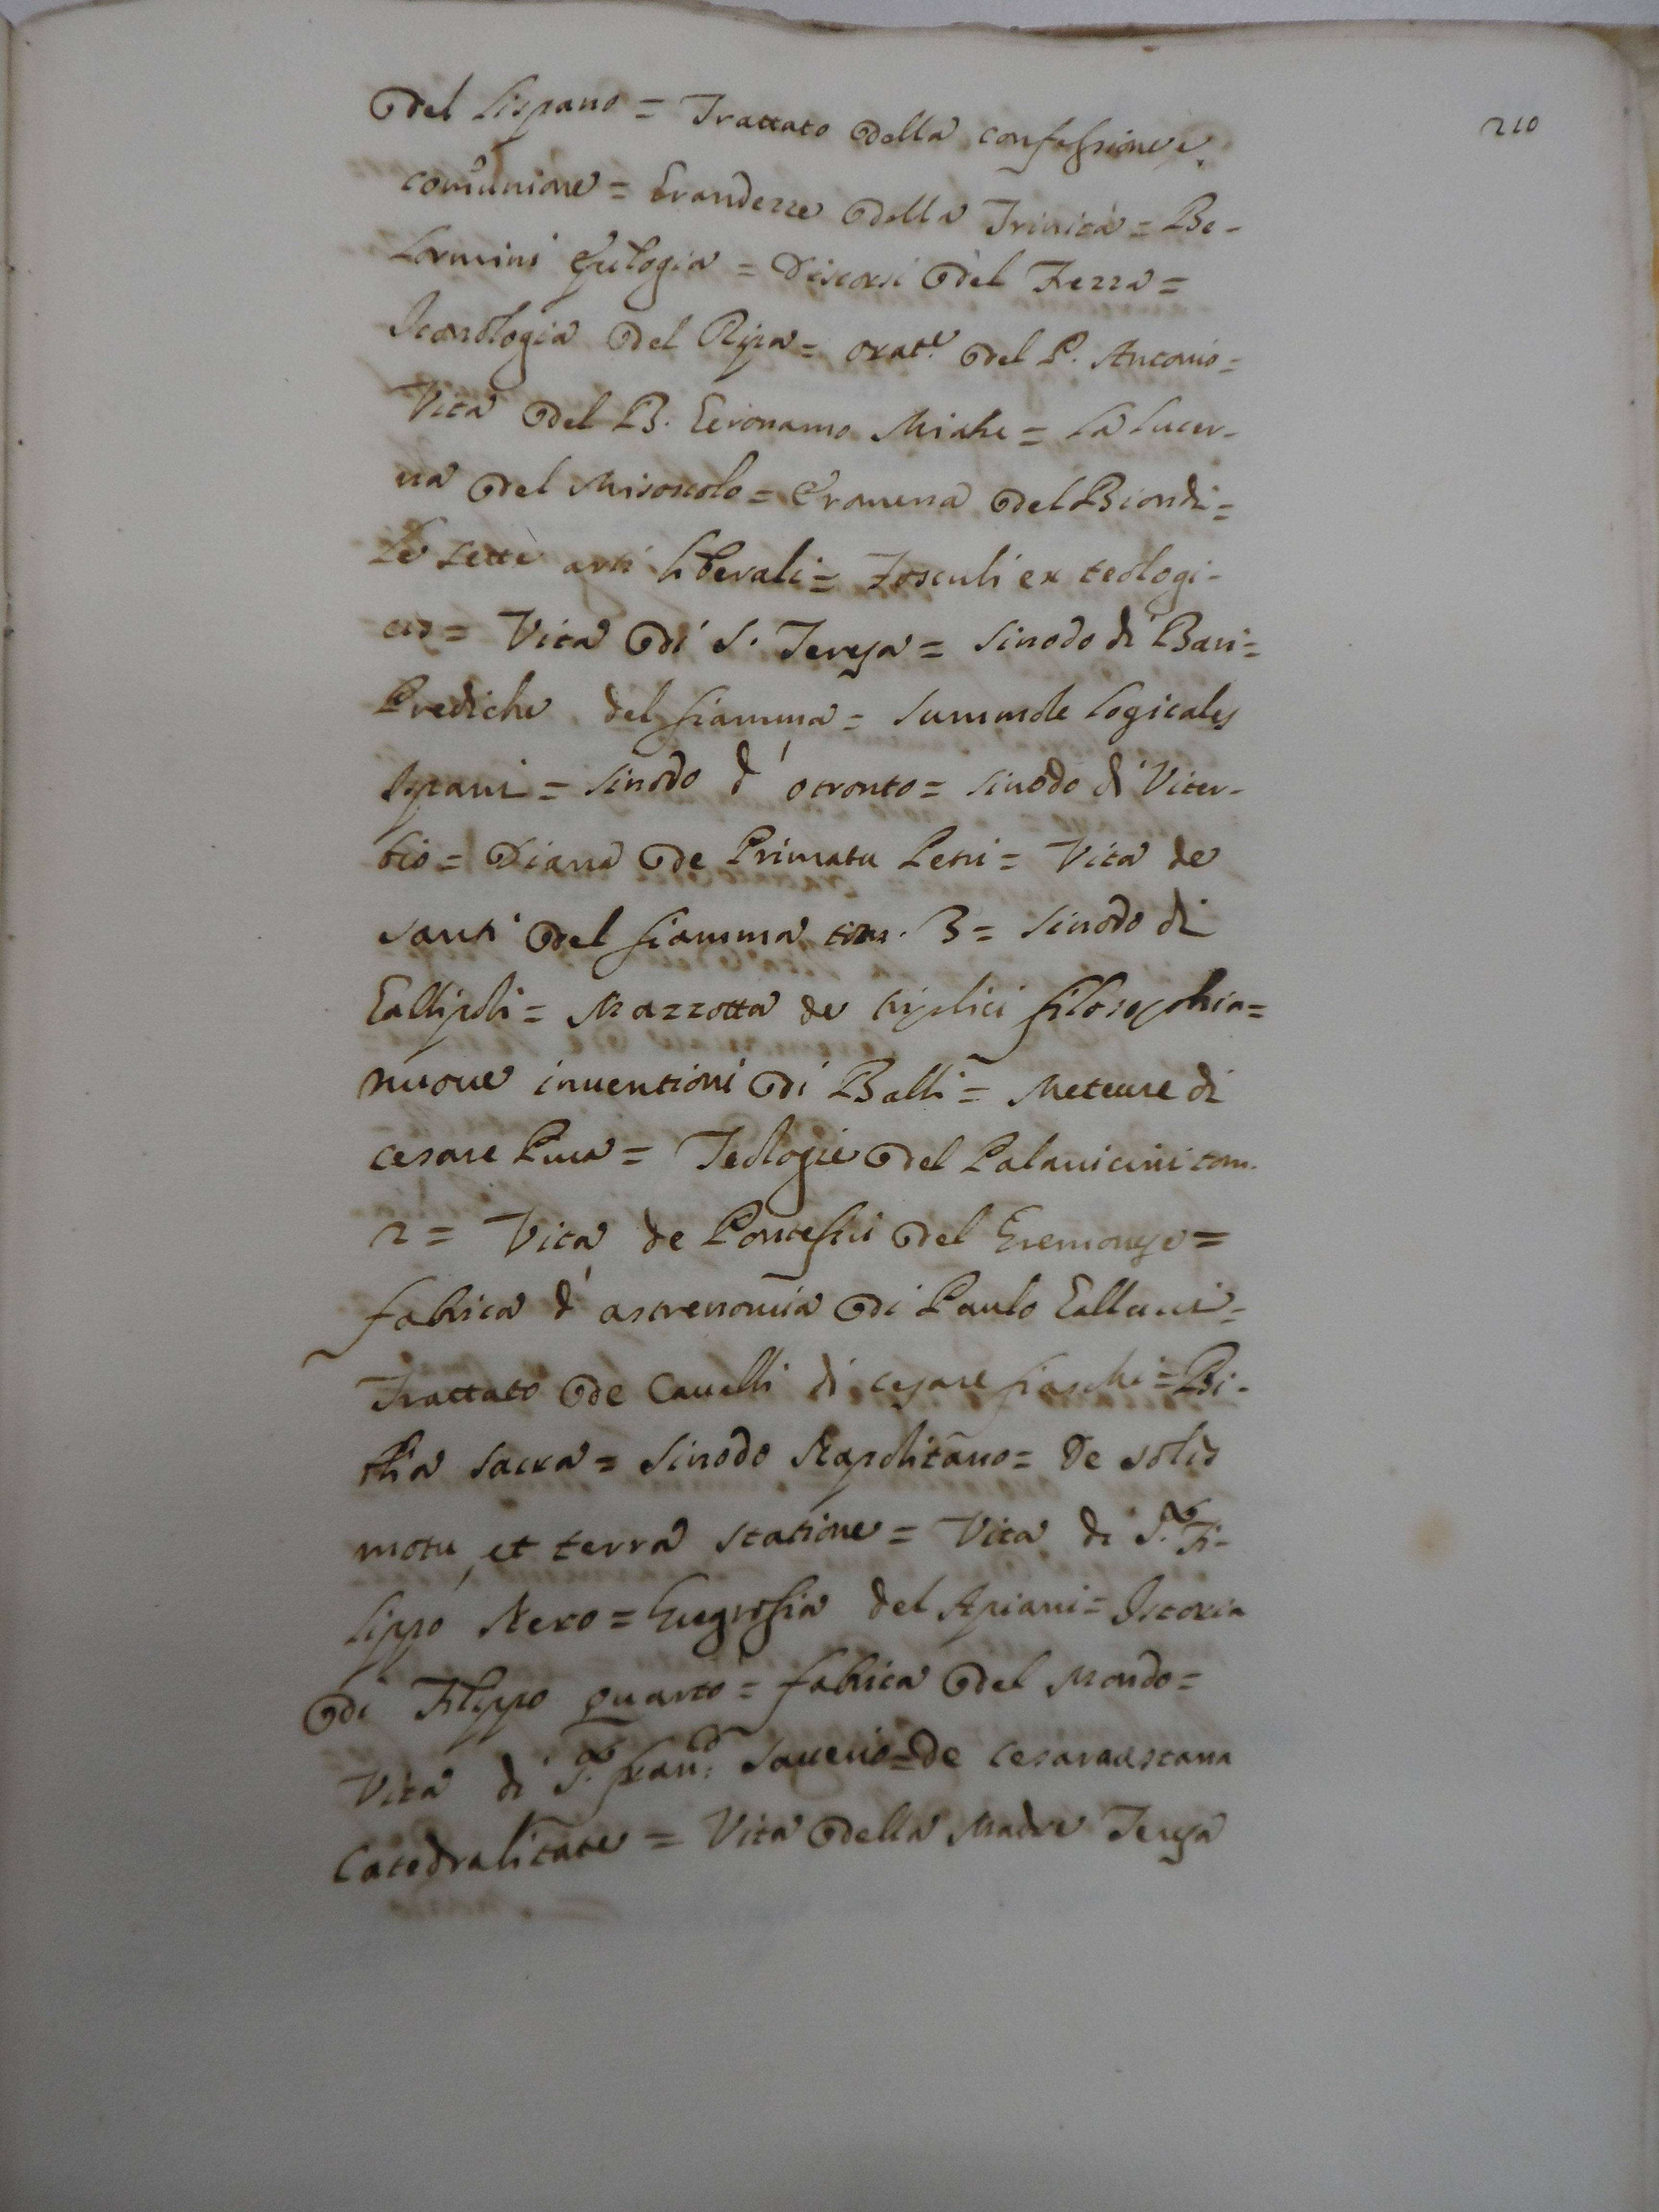 210
del Lispano = Trattato della confessione e
comunione = Grandezze della Trinità = Be-
larmini Epilogia = Discorsi del Fezza =
Iconologia del Ripa = orat.e del P. Antonio =
Vita del B. Geronamo Miahe = La Lucer-
na del Misoscolo = Eromena del Biondi =
Le sette arti liberali = Fosculi ex teologi-
cis = Vita di S. Teresa = Sinodo di Bari =
Prediche del fiamma = Summole Logicales
Ispani = Sinodo d' otronto = Sinodo di Viter-
bio = Diana de Primatu Petri = Vita de
santi del fiamma tom. 3 = Sinodo di
Gallipoli = Mazzotta de triplici filosophia =
nuove inventioni di Balli = Meteure di
cesare Pura = Teologie del Palavicini tom.
2 = Vita de Pontefici del Cremonese =
fabrica d' astrenomia di Paulo Gallucci =
Trattato de Cavelli di cesare fiaschi = Bi-
blia sacra = Sinodo Napolitano = De solis
motu, et terra statione = Vita di S. Fi-
lippo Nero = del Apiani = Istoria
di Filippo quarto = fabrica del Mondo =
Vita di S. fran:co Saverio = De cesaraustana
Catedralitate = Vita della Madre Teresa